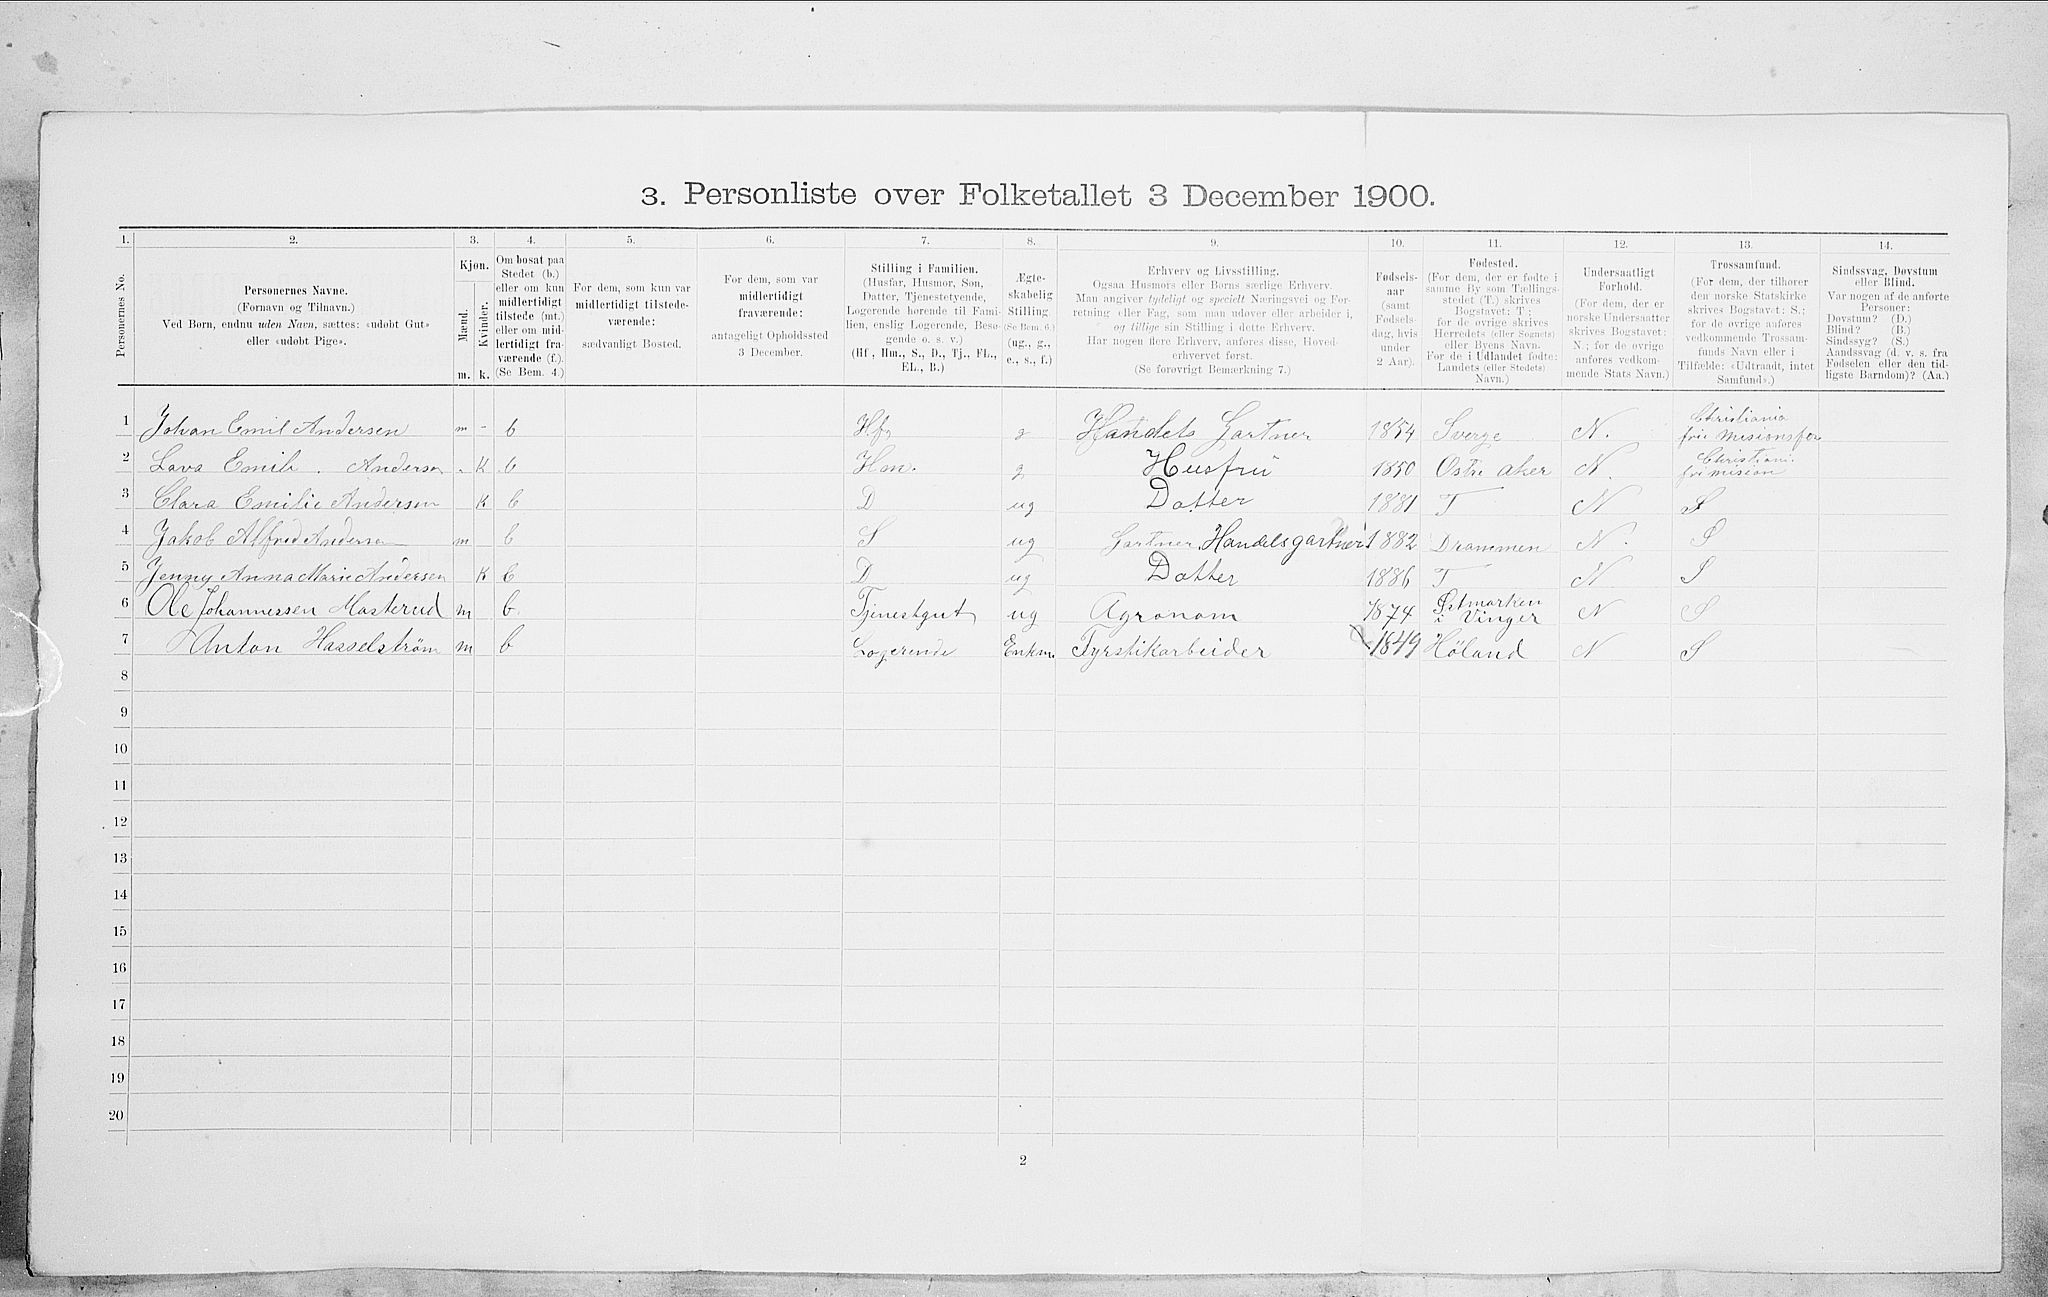 3. Personliste over Folketallet 3 December 1900.
1. 2. 3. 4. 5. 6. 7. 8. 9. 10. 11. 12. 13. 14.
Personernes No.
Personernes Navne.
(Fornavn og Tilnavn.)
Ved Børn, endnu uden Navn, sættes: «udøbt Gut»
eller «udøbt Pige».
Kjøn.
Mænd.
Kvinder.
m. k.
Om bosat paa
Stedet (b.)
eller om kun
midlertidigt
tilstede (mt.)
eller om mid-
lertidigt fra-
værende (f.).
(Se Bem. 4.)
For dem, som kun var
midlertidigt tilstede-
værende:
sædvanligt Bosted.
For dem, som var
midlertidigt
fraværende:
antageligt Opholdssted
3 December.
Stilling i Familien.
(Husfar, Husmor, Søn,
Datter, Tjenestetyende,
Logerende hørende til Fami-
lien, enslig Logerende, Besø-
gende o. s. v.)
(Hf., Hm., S., D., Tj., FL.,
EL., B.)
Ægte-
skabelig
Stilling.
(Se Bem. 6.)
(ug., g.,
e., s., f.)
Erhverv og Livsstilling.
Ogsaa Husmors eller Børns særlige Erhverv.
Man angiver tydeligt og specielt Næringsvei og For-
retning eller Fag, som man udøver eller arbeider i,
og tillige sin Stilling i dette Erhverv.
Har nogen flere Erhverv, anføres disse, Hoved-
erhvervet først.
(Se forøvrigt Bemærkning 7.)
Fødsels-
aar
(samt
Fødsels-
dag, hvis
under
2 Aar).
Fødested.
(For dem, der er fødte i
samme By som Tællings-
stedet (T.) skrives
Bogstavet: T;
for de øvrige skrives
Herredets (eller Sognets)
eller Byens Navn.
For de i Udlandet fødte:
Landets (eller Stedets)
Navn.)
Undersaatligt
Forhold.
(For dem, der er
norske Undersaatter
skrives Bogstavet:
N.; for de øvrige
anføres vedkom-
mende Stats Navn.)
Trossamfund.
(For dem, der tilhører
den norske Statskirke
skrives Bogstavet: S.;
for de øvrige anføres
vedkommende Trossam-
funds Navn eller i
Tilfælde: «Udtraadt, intet
Samfund».)
Sindssvag, Døvstum
eller Blind.
Var nogen af de anførte
Personer:
Døvstum? (D.)
Blind? (B.)
Sindssyg? (S.)
Aandssvag (d. v. s. fra
Fødselen eller den tid-
ligste Barndom)? (Aa.)
1 Johan Emil Andersen m - b Hf. g Handels Gartner 1854 Sverge N. Christiania
frie Misionsfor
2 Lava Emili. Andersen - K b Hm. g Husfru 1850 Østre aker N. Christiani.
fri mision
3 Clara Emilie Andersen K b D ug Datter 1881 T N S
4 Jakob Alfred Andersen m b S ug Gartner Handelsgartneri 1882 Drammen N. S
5 Jenny Anna Marie Andersen K b D ug Datter 1886 T N S
6 Ole Johannessen Masterud m b. Tjenestgut ug Agronom 1874 Østmarken
i Vinger N S
7 Anton Hasselstrøm m b Logerende Enkm. Fyrstikarbeider 1849 Høland N S
8
9
10
11
12
13
14
15
16
17
18
19
20
2